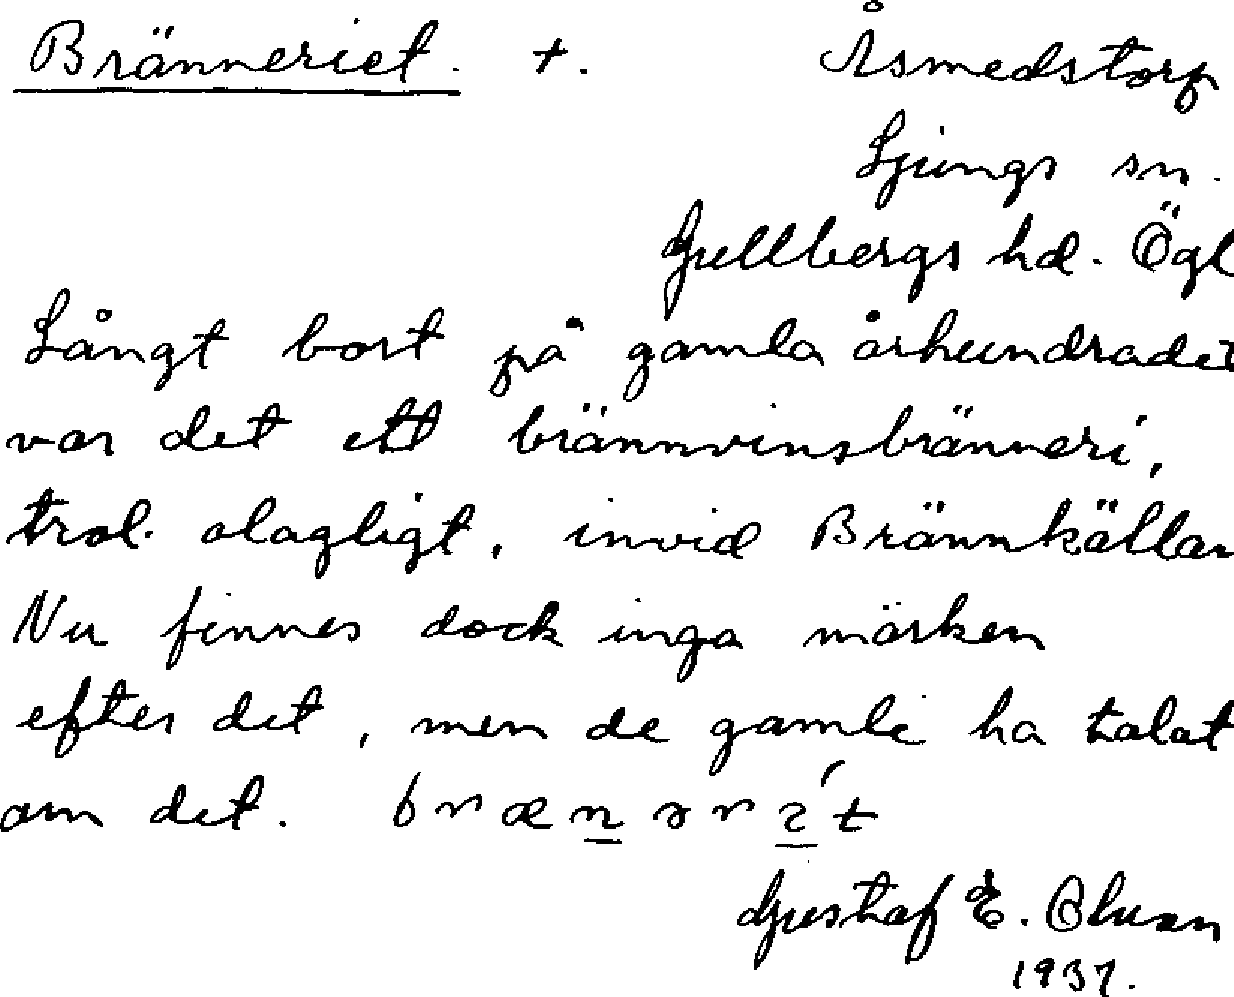 Bränneriet. +. Åsmedstorp
Ljungs sn.
Gullbergs hd. Ögl
Långt bort på gamla århundradet
var det ett brännvinsbränneri,
trol. olagligt, invid Brännkällan
Nu finnes dock inga märken
efter det, men de gamle ha talat
om det.
Gustaf E. Olsson
1937.